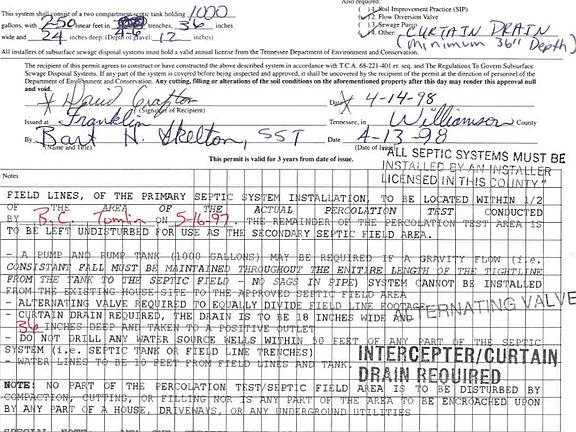 Also required:
This system shall consist of a two compartment septic tank holding 1000
gallons, with 250 linear feet in trenches, 36 inches
wide and 24 inches deep. (Depth of gravel: 12 inches)
1. Soil Improvement Practice (SIP)
2. Flow Diversion Valve
3. Sewage Pump
4. Other: CURTAIN DRAIN
(Minimum 36" Depth)
All installers of subsurface sewage disposal systems must hold a valid annual license from the Tennessee Department of Environment and Conservation.
The recipient of this permit agrees to construct or have constructed the above described system in accordance with T.C.A. 68-221-401 et. seq. and The Regulations To Govern Subsurface
Sewage Disposal Systems. If any part of the system is covered before being inspected and approved, it shall be uncovered by the recipient of the permit at the direction of personnel of the
Department of Environment and Conservation. Any cutting, filling or alterations of the soil conditions on the aforementioned property after this day may render this approval null
and void.
X David Crafton Date X 4-14-98
(Signature of Recipient)
Issued at Franklin Tennessee, in Williamson County
By Bart N. Skelton, SST 4-13-98
(Name and Title) (Date of Issue)
This permit is valid for 3 years from date of issue.
ALL SEPTIC SYSTEMS MUST BE
INSTALLED BY AN INSTALLER
LICENSED IN THIS COUNTY"
Notes
FIELD LINES, OF THE PRIMARY SEPTIC SYSTEM INSTALLATION, TO BE LOCATED WITHIN 1/2
OF THE AREA OF THE ACTUAL PERCOLATION TEST CONDUCTED
BY B.C. Tomlin ON 5-16-97. THE REMAINDER OF THE PERCOLATION TEST AREA IS
TO BE LEFT UNDISTURBED FOR USE AS THE SECONDARY SEPTIC FIELD AREA.
- A PUMP AND PUMP TANK (1000 GALLONS) MAY BE REQUIRED IF A GRAVITY FLOW (i.e.
CONSISTANT FALL MUST BE MAINTAINED THROUGHOUT THE ENITIRE LENGTH OF THE TIGHTLINE
FROM THE TANK TO THE SEPTIC FIELD - NO SAGS IN PIPE) SYSTEM CANNOT BE INSTALLED
FROM THE EXISTING HOUSE SITE TO THE APPROVED SEPTIC FIELD AREA
- ALTERNATING VALVE REQUIRED TO EQUALLY DIVIDE FIELD LINE FOOTAGE
ALTERNATING VALVE
- CURTAIN DRAIN REQUIRED, THE DRAIN IS TO BE 18 INCHES WIDE AND
36 INCHES DEEP AND TAKEN TO A POSITIVE OUTLET
- DO NOT DRILL ANY WATER SOURCE WELLS WITHIN 50 FEET OF ANY PART OF THE SEPTIC
SYSTEM (i.e. SEPTIC TANK OR FIELD LINE TRENCHES)
- WATER LINES TO BE 10 FEET FROM FIELD LINES AND TANK.
INTERCEPTER/CURTAIN
DRAIN REQUIRED
NOTE: NO PART OF THE PERCOLATION TEST/SEPTIC FIELD AREA IS TO BE DISTURBED BY
COMPACTION, CUTTING, OR FILLING NOR IS ANY PART OF THE AREA TO BE ENCROACHED UPON
BY ANY PART OF A HOUSE, DRIVEWAYS, OR ANY UNDERGROUND UTILITIES